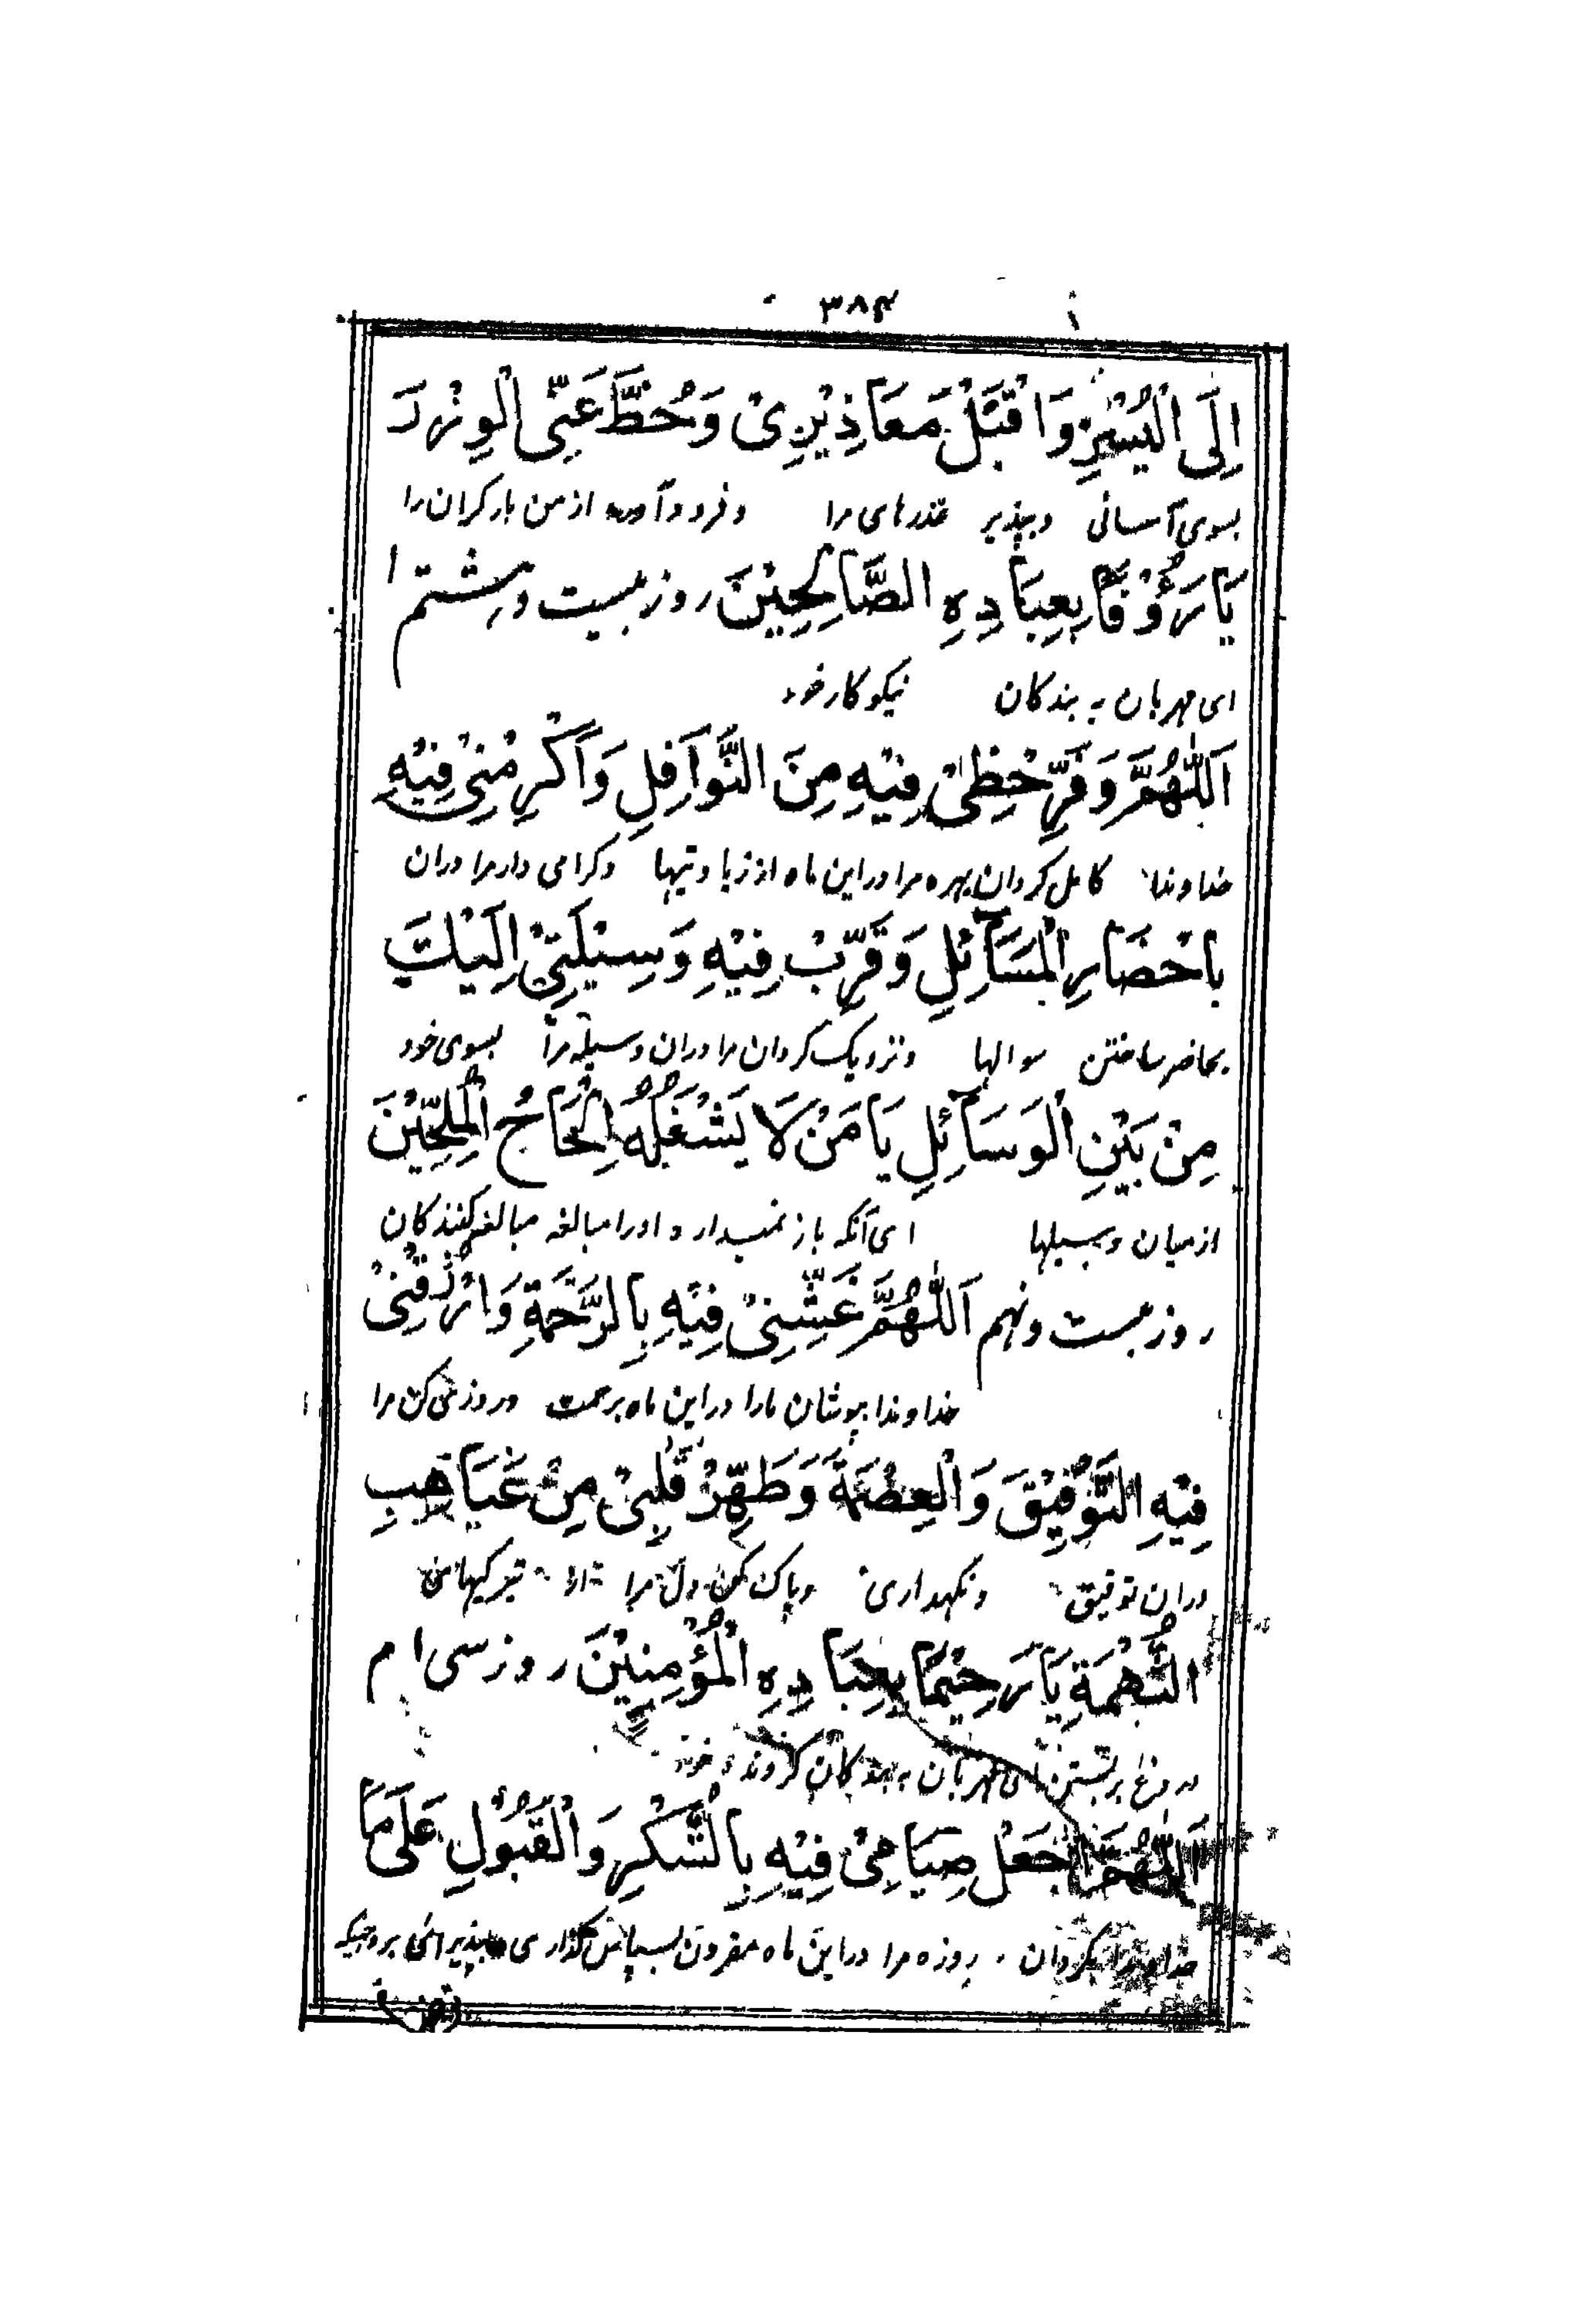 ۳۸۴
اِلَی الْیُسْرِ وَاقْبَلْ مَعَاذِیْرِیْ وَحُطَّ عَنِّی الْوِزْرَ
بسوی آسانی وبپذیر عذرهای مرا وفرود آور از من بار گران را
یَا رَؤُوْفًا بِعِبَادِهِ الصَّالِحِیْنَ روز بیست وهشتم
ای مهربان به بندکان نیکو کار خود
اَللّٰهُمَّ وَفِّرْ حَظِّیْ فِیْهِ مِنَ النَّوَافِلِ وَاَکْرِمْنِیْ فِیْهِ
خداوندا کامل کردان بهره مرا دراین ماه از زیادتیها وکرامی دار مرا دران
بِاحْضَارِ الْمَسَآئِلِ وَقَرِّبْ فِیْهِ وَسِیْلَتِیْ اِلَیْكَ
بحاضر ساختن سوالها ونزدیک کردان مرا دران وسیله مرا بسوی خود
مِنْ بَیْنِ الْوَسَآئِلِ یَا مَنْ لَا یَشْغَلُهُ اِلْحَاحُ الْمُلِحِّیْنَ
از میان وسیلها ای آنکه باز نمیدارد اورا مبالغه مبالغه کنندکان
روز بیست ونهم اَللّٰهُمَّ غَشِّنِیْ فِیْهِ بِالرَّحْمَةِ وَارْزُقْنِیْ
خداوندا بپوشان مارا دراین ماه برحمت وروزی کن مرا
فِیْهِ التَّوْفِیْقَ وَالْعِصْمَةَ وَطَهِّرْ قَلْبِیْ مِنْ غَیَاهِبِ
دران توفیق ونکهداری وپاک کن دل مرا از تیرکیهای
التُّهْمَةِ یَا رَحِیْمًا بِعِبَادِهِ الْمُؤْمِنِیْنَ روز سی ام
دروغ بربستن ای مهربان به بندکان کرونده خود
اَللّٰهُمَّ اجْعَلْ صِیَامِیْ فِیْهِ بِالشُّکْرِ وَالْقَبُوْلِ عَلٰی مَا
خداوندا بکردان روزه مرا دراین ماه مقرون بسپاس کذاری وپذیرائی بروجیکه